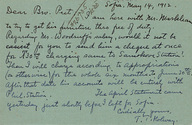 Sofia, May 14, 1912.
Dear Bro. Pact,
am here with Mr. Markham
to try to get his furniture thru free of duty
Regarding Mr. Woodruff's salary, would it not be
easiest for you to send him a cheque at once
for £30 charging same to Samokov Station?
Then I will charge according to appropriations
(or otherwise) for the whole six months to June 30th.
After that date his accounts will be entirely with
Phil. Station. The April Statement came
yesterday just shortly before I left for Sofia
Cordially yours,